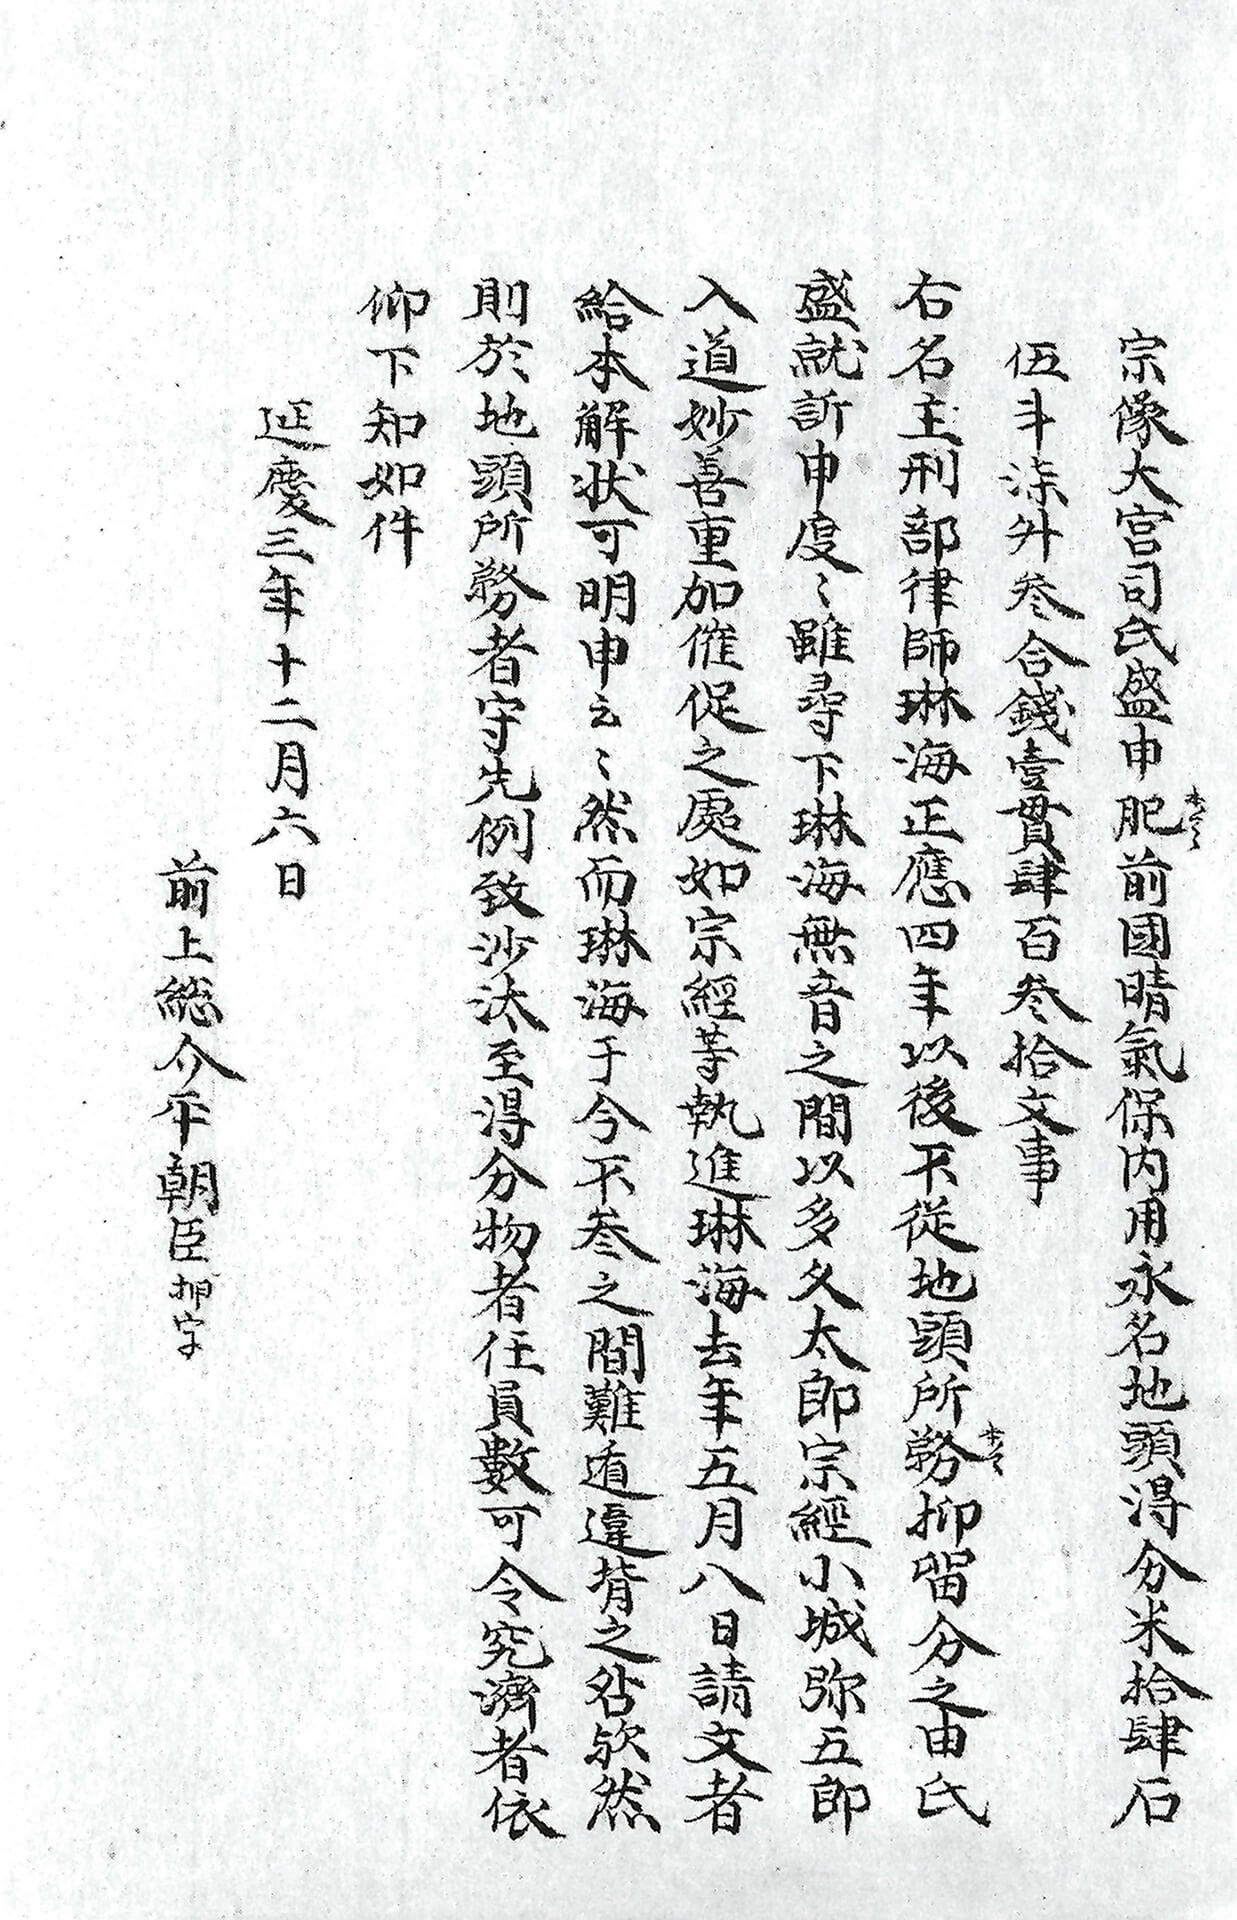 宗像大宮司氏盛申肥前國晴氣保内用永名地頭得分米拾肆石
伍斗柒升叄合錢壹貫肆百叄拾文事
右名主刑部律師琳海正應四年以後不従地頭所務抑留分之由氏
盛就訴申度〻雖尋下琳海無音之間以多久太郎宗經小城弥五郎
入道妙善重加催促之處如宗經等執進琳海去年五月八日請文者
給本解状可明申云〻然而琳海于今不叄之間難遁違背之咎欤然
則於地頭所務者守先例致沙汰至得分物者任員數可令究濟者依
仰下知如件
延慶三年十二月六日
前上総介平朝臣押字